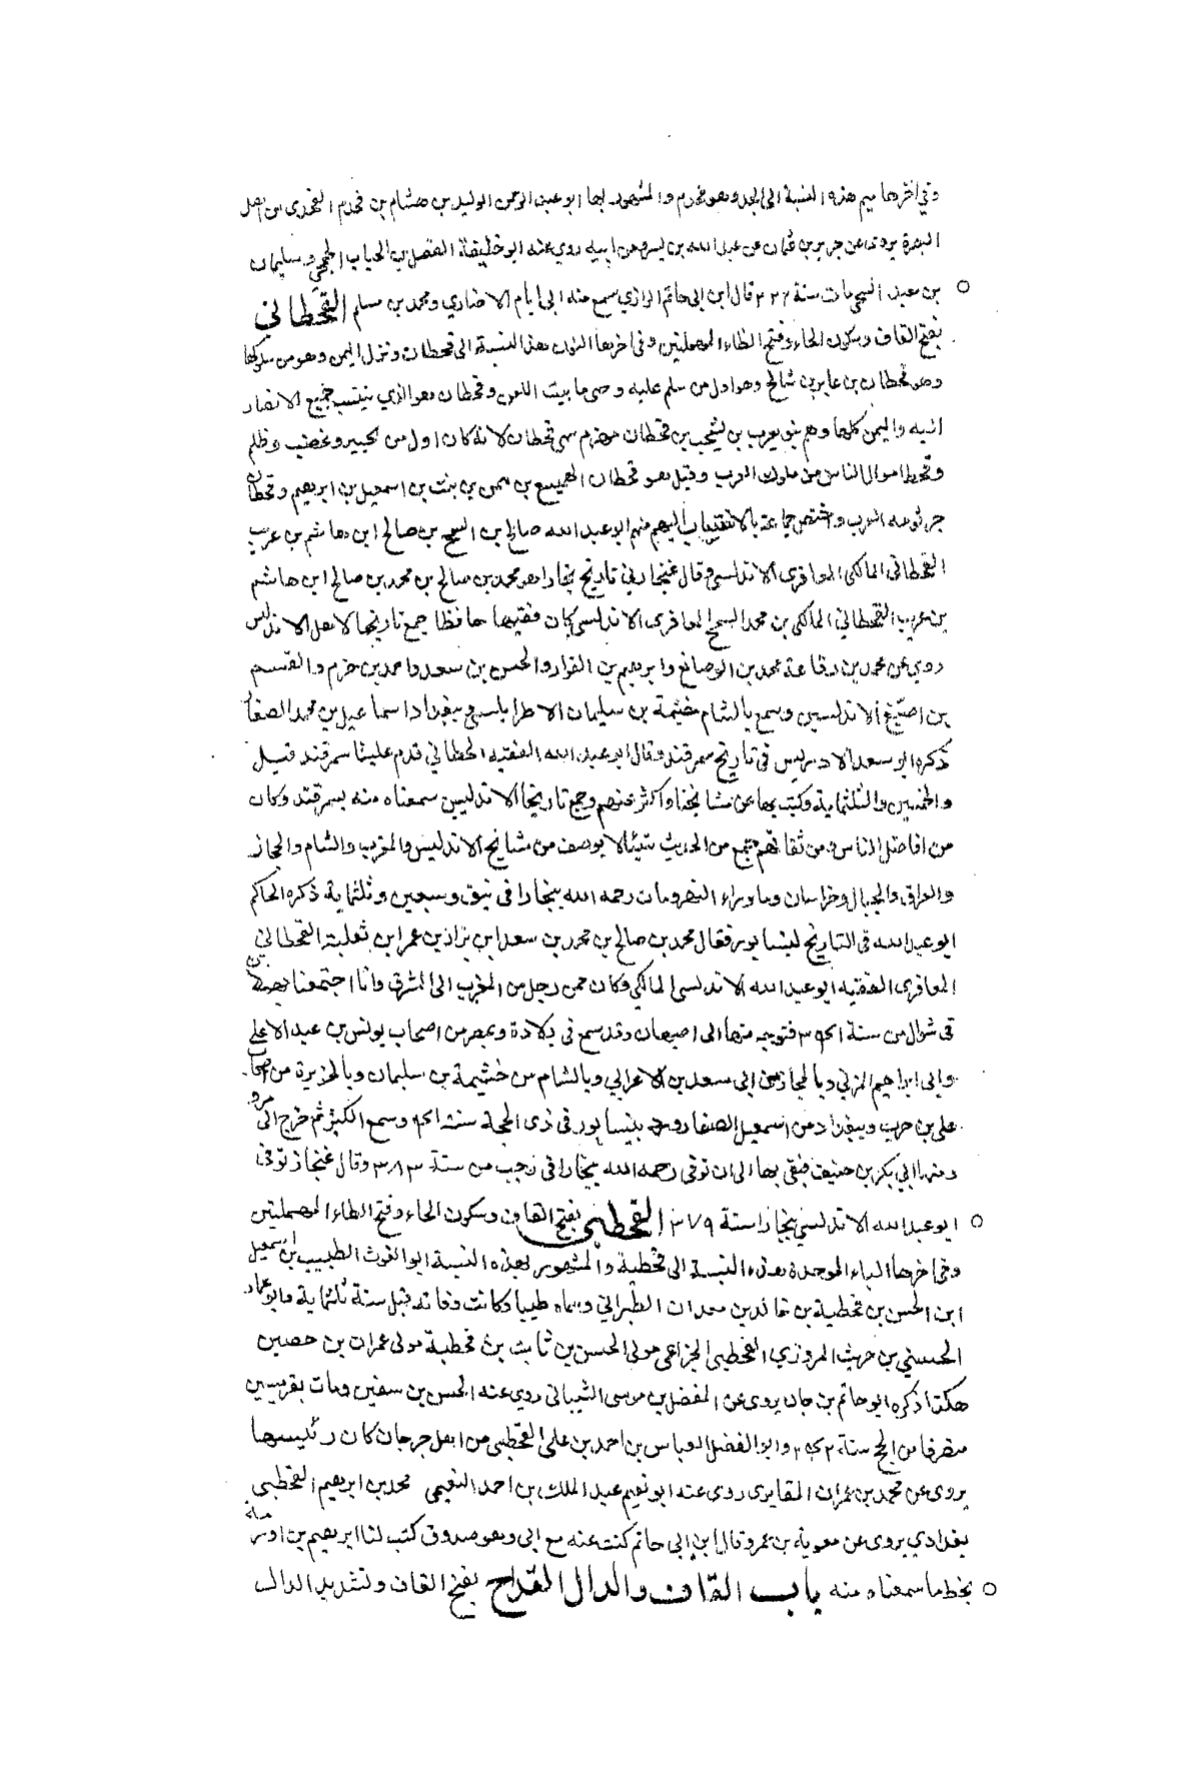 وفي اخرها ميم هذه النسبة الى الجد وهو مخدم والمشهور بها ابو عبد الرحمن الوليد بن هشام بن قحذم القحذمي من اهل
البصرة يروى عن جرير بن عثمان عن عبد الله بن بسر عن ابيه روي عنه ابو خليفة الفضل بن الحباب الجمحي وسليمان
بن معبد السجى مات سنة ٢٢٢ قال ابن ابى حاتم الرازي سمع منه ابى ايام الانصاري ومحمد بن مسلم القحطاني
بفتح القاف وسكون الحاء وفتح الطاء المهملتين وفى اخرها النون هذه النسبة الى قحطان ونزل اليمن وهو من ملوكها
وهو قحطان بن عابر بن شالخ وهو اول من سلم عليه وحى ما بيت اللعن وقحطان هو الذي ينتسب جميع الانصار
اليه واليمن كلها وهم بنو يعرب بن يشجب بن قحطان مهزم سمى قحطان لانه كان اول من تجبر وغضب وظلم
وقحط اموال الناس من ملوك العرب وقيل هو قحطان الهميسع بن يمن بن بنت بن اسمعيل بن ابرهيم وقحطان
جرثومة العرب واختص جماعة بالانتساب اليهم منهم ابو عبد الله صالح بن السمح بن صالح ابن هاشم بن عريب
القحطانى المالكى المعافرى الاندلسى وقال غنجار في تاريخ بخارا هو محمد بن صالح بن محمد بن صالح ابن هاشم
بن عريب القحطاني المالكى بن محمد السمح المعافرى الاندلسى كان فقيها حافظا جمع تاريخا لاهل الاندلس
روي عن محمد بن رفاعة محمد بن الوصانع وابرهيم بن القزار والحسن بن سعد واحمد بن حزم والقسم
بن اصبغ الاندلسيين وسمع بالشام خيثمة بن سليمان الاطرابلسي وببغداد اسماعيل بن محمد الصفار
ذكره ابو سعد الادريسى فى تاريخ سمرقند وقال ابو عبد الله الفقيه الحطاني قدم علينا سمرقند قبل
والخمسين والثلثماية وكتب بها عن مشايخنا واكثر عنهم وجمع تاريخا الاندلسين سمعناه منه بسمرقند وكان
من افاضل الناس ومن ثقاتهم جمع من الحديث شيئا لا يوصف من مشايخ الاندلس والمغرب والشام والحجاز
والعراق والجبال وخراسان وما وراء النهر ومات رحمه الله ببخارا فى نيق وسبعين وثلثماية ذكره الحاكم
ابو عبد الله فى التاريخ لنيسابور فقال محمد بن صالح بن محمد بن سعد ابن نزار بن عمر ابن ثعلبة القحطاني
المعافرى الفقيه ابو عبد الله الاندلسى المالكى وكان ممن رحل من المغرب الى المشرق وانا اجتمعنا بهمذان
فى شوال من سنة ٣٤١ فتوجه منها الى اصبهان وقد سمع فى بلادة وبمصر من اصحاب يونس بن عبد الاعلى
وابى ابراهيم المزني وبالحجاز من ابى سعد بن الاعرابي وبالشام من خثيمة بن سليمان وبالجزيرة من اصحاب
على بن حرب وببغداد من اسمعيل الصفار وورد بنيسابور فى ذى الحجة سنة ٣٤١ وسمع الكثير ثم خرج الى مرو
ومنها الى ابي بكر بن حنيف فبقى بها الى ان توفى رحمه الله ببخارا فى رجب من سنة ٣٨٣ وقال غنجار توفى
ابو عبد الله الاندلسي ببخارا سنة ٣٧٩ القحطبى بفتح القاف وسكون الحاء وفتح الطاء المهملتين
وفى اخرها الباء الموحدة هذه النسبة الى قحطبة والمشهور بهذه النسبة ابو الغوث الطيب بن اسمعيل
ابن الحسن بن قحطبة بن خالد بن معدان الطبراني وساه طيبا وكانت وفاته قبل سنة ثلثماية وابو عمار
الحسيني بن حريث المروزي القحطبى الخزاعى مولى الحسن بن ثابت بن قحطبة مولى عمران بن حصين
هكذا ذكره ابو حاتم بن حبان يروى عن المفضل بن موسى الشيبانى روي عنه الحسن بن سفين ومات بقرميسين
منصرفا من الحج سنة ٢٤٤ وابو الفضل العباس بن احمد بن على القحطبى من اهل جرجان كان رئيسها
يروى عن محمد بن عمران المقابرى روى عنه ابو نعيم عبد الملك بن احمد النعيمى محمد بن ابرهيم القحطبى
بغدادي يروى عن معوية بن عمرو قال ابن ابى حاتم كنت عنه مع ابى وهو صدوق كتب لنا ابرهيم بن اورمة
بخط ما سمعناه منه باب القاف والدال القداح بفتح القاف وتشديد الدال